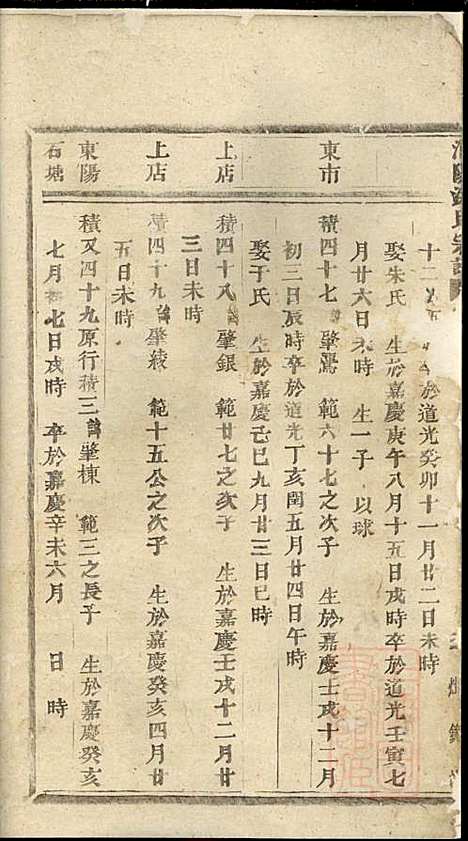 十二 於道光癸卯十一月廿二日未時
娶朱氏 生於嘉慶庚午八月十五日戌時卒於道光壬寅七
月廿六日未時 生一子 以球
東市 積四十七 諱肇鸞 範六十七之次子 生於嘉慶壬戌十二月
初三日辰時卒於道光丁亥閏五月廿四日午時
娶于氏 生於嘉慶己巳九月廿三日巳時
上店 積四十八 諱肇銀 範廿七之次子 生於嘉慶壬戌十二月廿
三日未時
上店 積四十九 諱肇綾 範十五公之次子 生於嘉慶癸亥四月廿
五日未時
東陽 積又四十九原行積三諱肇棟 範三之長子 生於嘉慶癸亥
石塘 七月初七日戌時 卒於嘉慶辛未六月 日 時